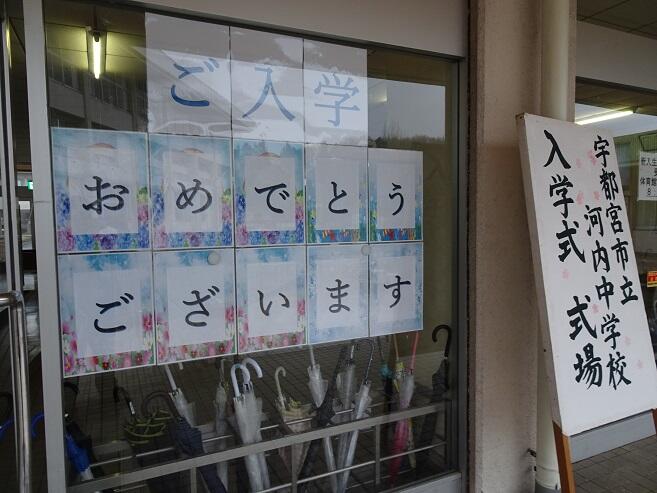 ご入学
おめでとう
ございます
宇都宮市立
河内中学校
入学式 式場
新入生
体育館